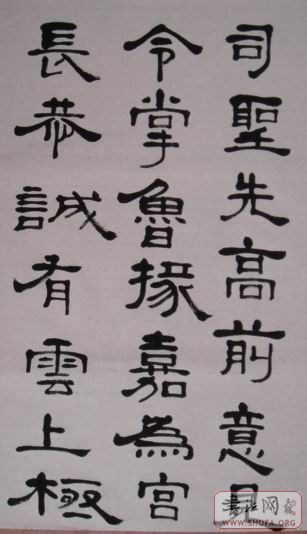 司聖先高前意
令掌魯掾嘉為宮
長恭誠有雲上極
WWW.SHUFA.ORG